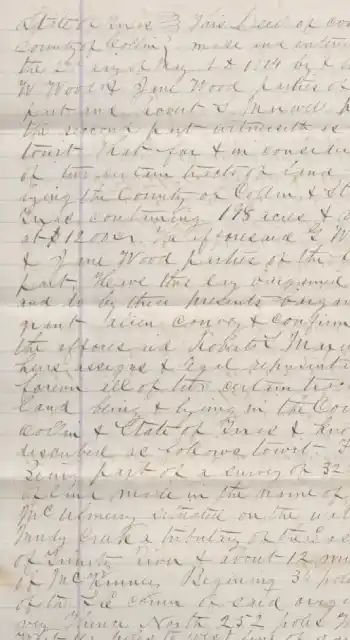 State of Texas } This Deed of con
County of Collin } made and entere
the 2nd day of May A D 18 4 by &
W Wood & Jane Wood parties of
part and Robert S Maxwell p
the second part witnesseth as
towit That for & in conside
of two certain tracts of land
lying the County of Collin & St
Texas containing 178 acres & a
at $12 00 the afforesaid W
& Jane Wood parties of the f
part Have this day bargained
and do by these presents bargai
grant alien convey & confirm
the afforesaid Robert S Maxw
heirs assigns & legal representat
forever all of two certain trac
land being & lying in the Cou
Collin & State of Texas & kno
discribed as follows towit F
Being part of a survey of 32
of land made in the name of
situated on the wat
Mudy Creek a tributary of the Eas
of Trinity River & about 12 m
of McKinney Begining 3 poles
of the S E corner of said orig
vey Thence North 252 poles